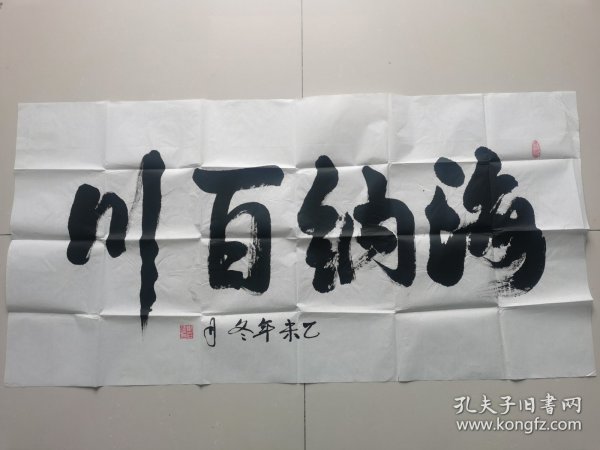 海纳百川
乙未年冬月
孔夫子旧書网
www.kongfz.com